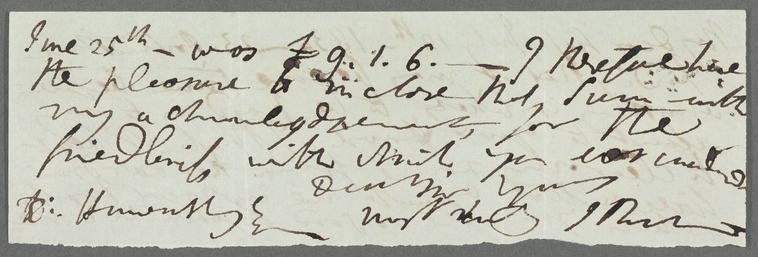 June 25th - was £9.1.6. — I therefore have
the pleasure to inclose that Sum with
my acknowledgements for the
friendliness with which you
Dear Sir Yours
most truly